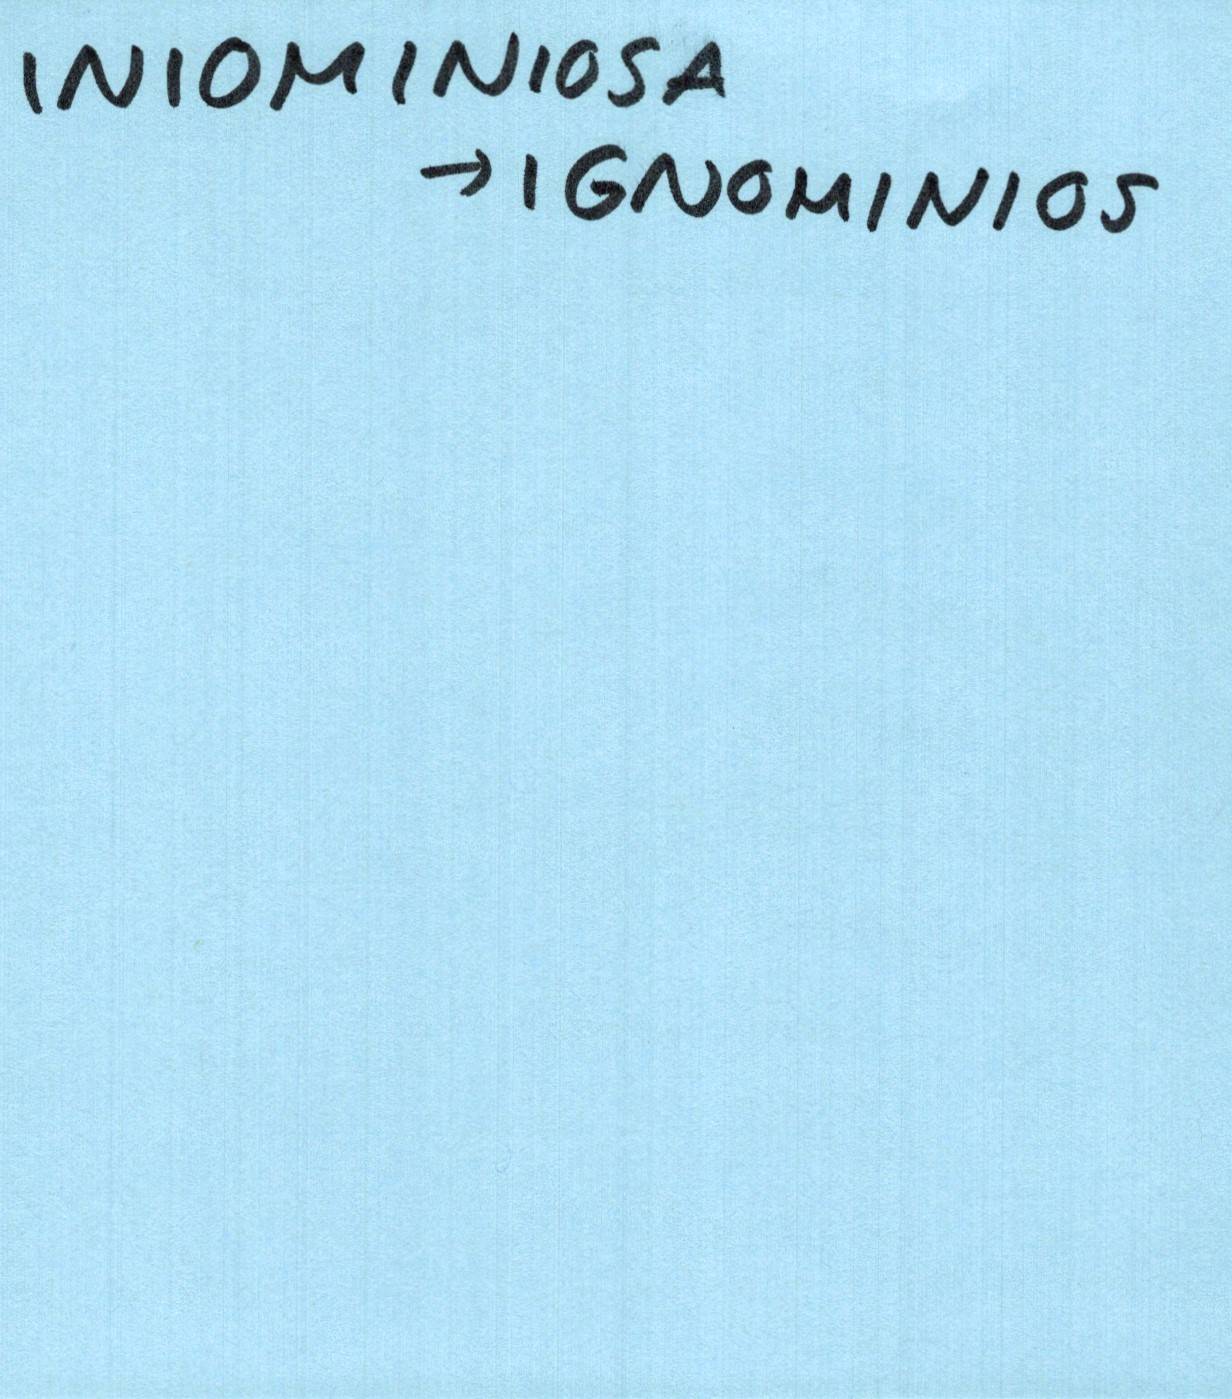 INIOMINIOSA
→IGNOMINIOS